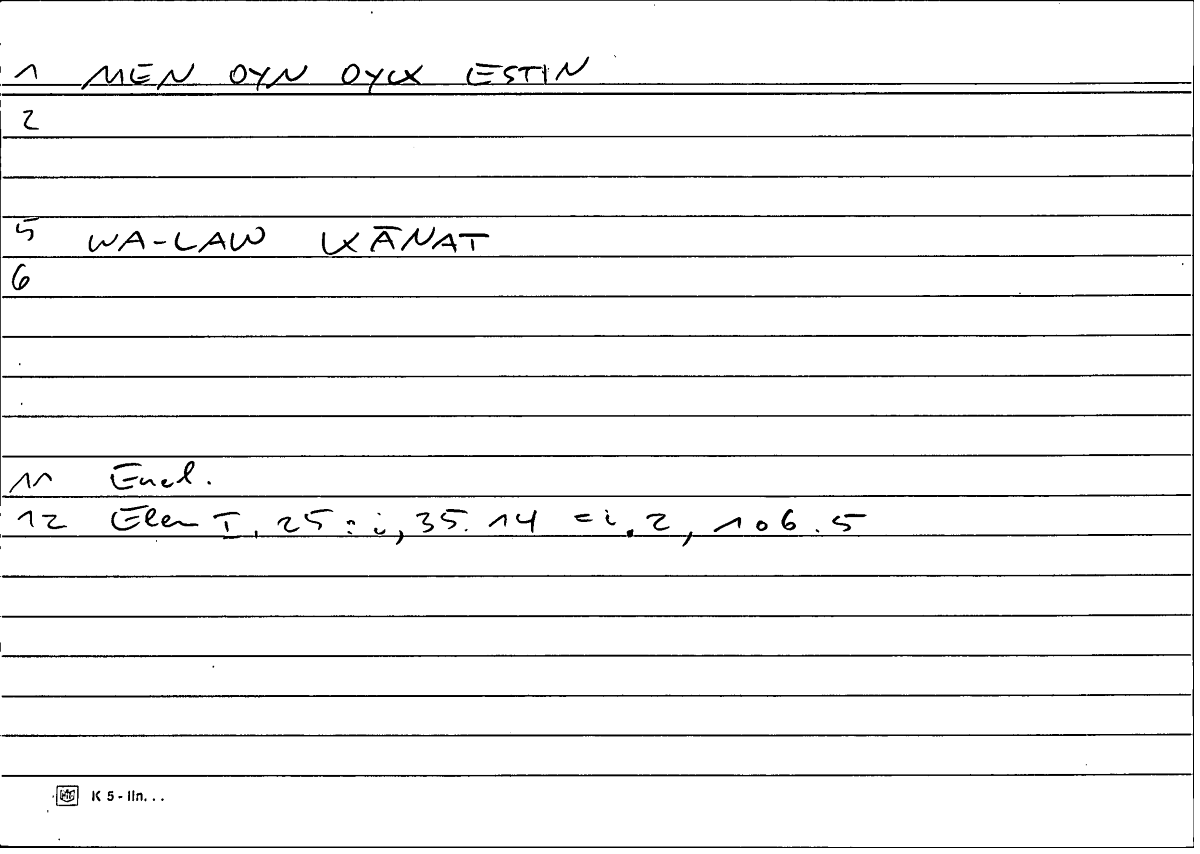 1 MEN OYN OYK ESTIN
2
5 WA-LAW KĀNAT
6
11 Eucl.
12 Elem I, 25 : i, 35. 14 = i. 2, 106. 5
K 5 - lin. . .